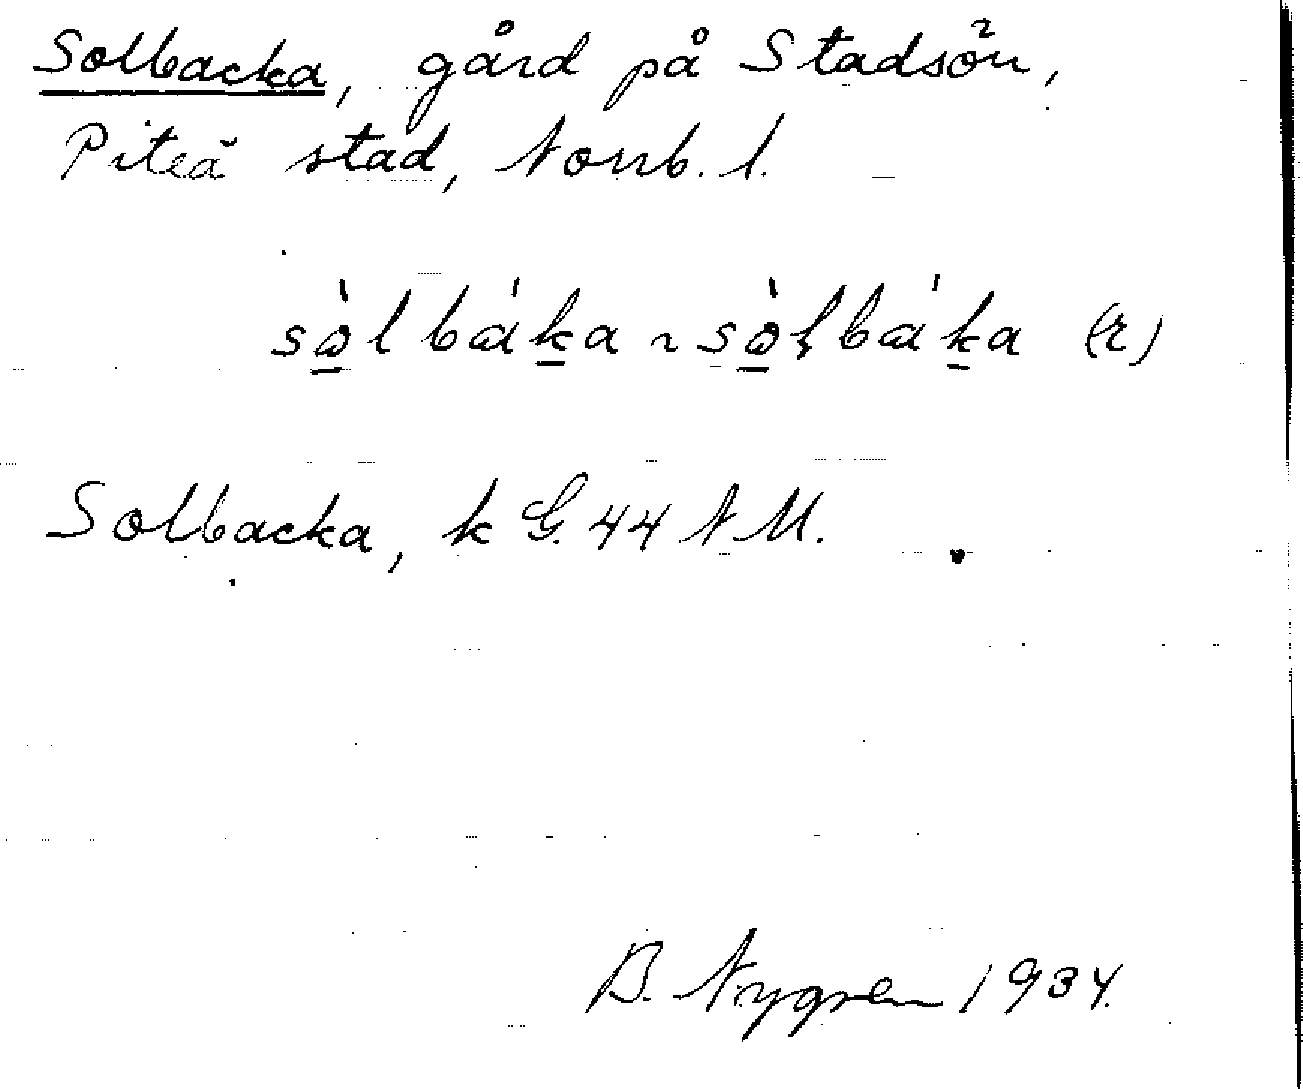 Solbacka, gård på Stadsön,
Piteå stad, Norrb. l.
sòlbáka ~ sòḷbáka (r)
Solbacka, k G. 44 N M.
B. Nygren 1934.